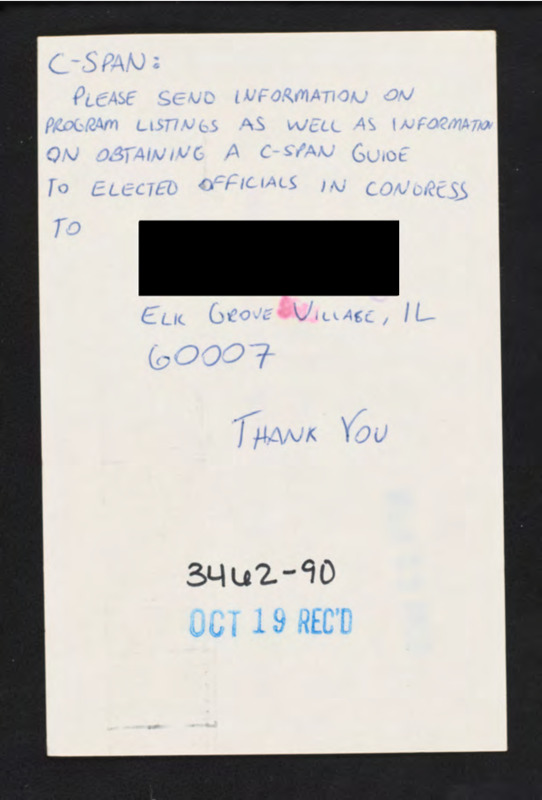 C-SPAN:
PLEASE SEND INFORMATION ON
PROGRAM LISTINGS AS WELL AS INFORMATION
ON OBTAINING A C-SPAN GUIDE
TO ELECTED OFFICIALS IN CONGRESS
TO
ELK GROVE VILLAGE, IL
60007
THANK YOU
3462-90
OCT 19 REC'D